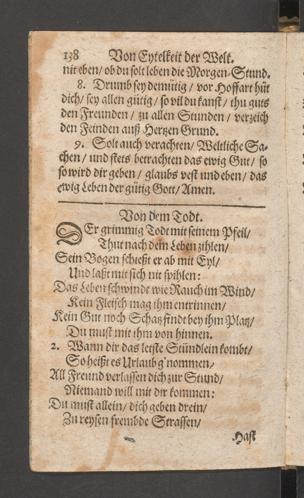 138 Von Eytelkeit der Welt.
nit eben/ ob du solt leben die Morgen-Stund.
8. Drumb sey demütig/ vor Hoffart hüt
dich/ sey allen gütig/ so vil du kanst/ thu guts
den Freunden/ zu allen Stunden/ verzeich
den Feinden auß Hertzen Grund.
9. Solt auch verachten/ Weltliche Sa-
chen/ und stets betrachten das ewig Gut/ so
so wird dir geben/ glaubs vest und eben/ das
ewig Leben der gütig Gott/ Amen.
Von dem Todt.
DEr grimmig Todt mit seinem Pfeil/
Thut nach dem Leben zihlen/
Sein Bogen schießt er ab mit Eyl/
Und laßt mit sich nit spihlen:
Das Leben schwindt wie Rauch im Wind/
Kein Fleisch mag ihm entrinnen/
Kein Gut noch Schatz findt bey ihm Platz/
Du must mit ihm von hinnen.
2. Wann dir das letste Stündlein kombt/
So heißt es Urlaub g'nommen/
All Freund verlassen dich zur Stund/
Niemand will mit dir kommen:
Du must allein/ dich geben drein/
Zu reysen frembde Strassen/
Hast